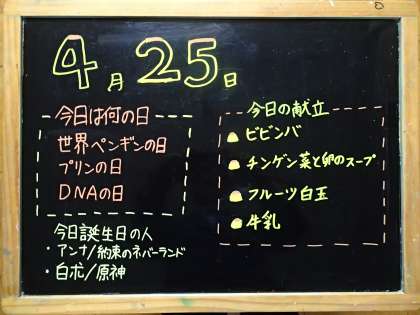 4月25日
今日は何の日
世界ペンギンの日
プリンの日
DNAの日
今日誕生日の人
・アンナ/約束のネバーランド
・白朮/原神
今日の献立
ビビンバ
チンゲン菜と卵のスープ
フルーツ白玉
牛乳